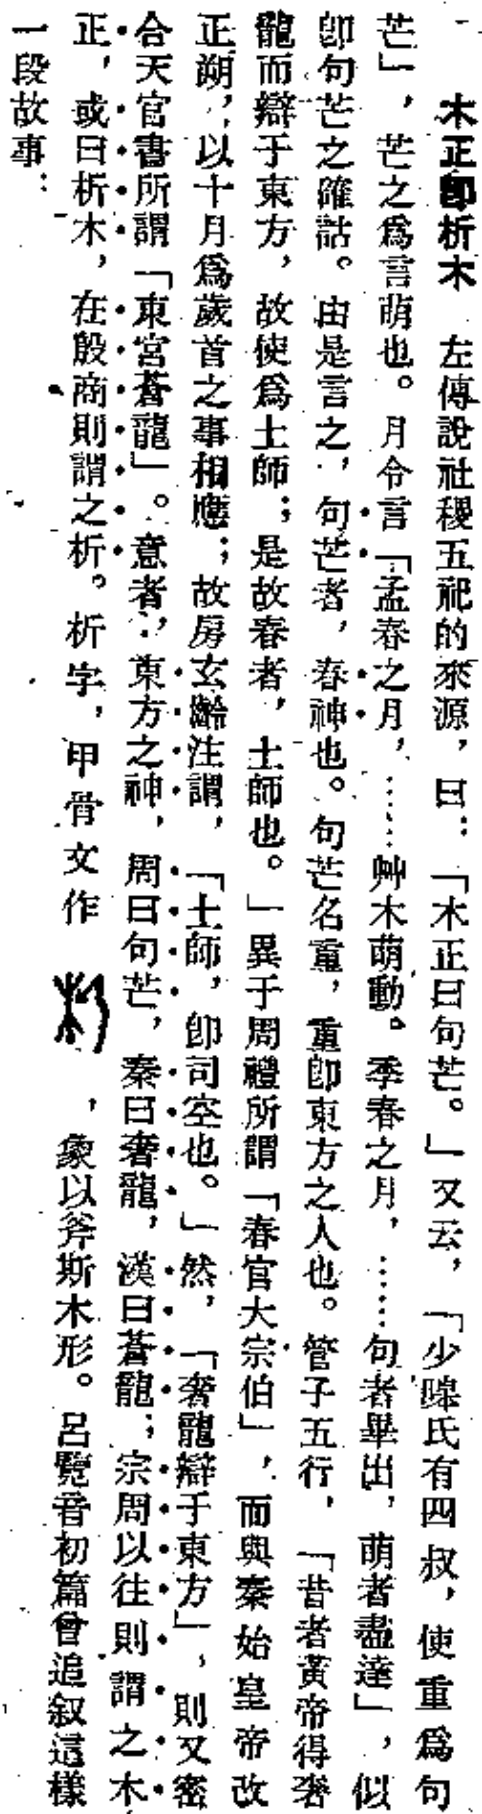 木正卽析木　左傳說社稷五祀的來源，曰：「木正曰句芒。」又云，「少皞氏有四叔，使重爲句
芒」，芒之爲言萌也。月令言「孟春之月，……艸木萌動。季春之月，……句者畢出，萌者盡達」，似
卽句芒之確詁。由是言之，句芒者，春神也。句芒名重，重卽東方之人也。管子五行，「昔者黃帝得奢
龍而辯于東方，故使爲土師；是故春者，土師也。」異于周禮所謂「春官大宗伯」，而與秦始皇帝改
正朔，以十月爲歲首之事相應；故房玄齡注謂，「土師，卽司空也。」然，「奢龍辯于東方」，則又密
合天官書所謂「東宮蒼龍」。意者，東方之神，周曰句芒，秦曰奢龍，漢曰蒼龍；宗周以往則謂之木
正，或曰析木，在殷商則謂之析。析字，甲骨文作　，象以斧斯木形。呂覽音初篇曾追叙這樣
一段故事：